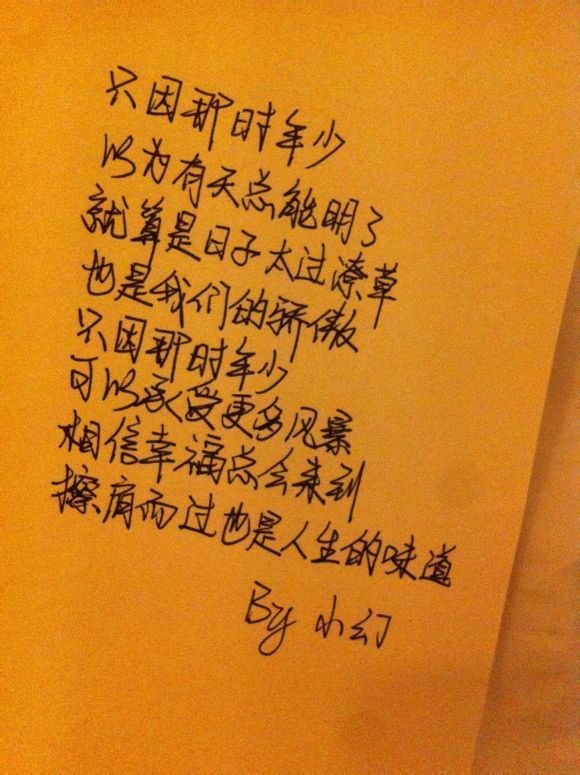 只因那时年少
以为有天总能明了
就算是日子太过潦草
也是我们的骄傲
只因那时年少
可以承受更多风景
相信幸福总会来到
擦肩而过也是人生的味道
By 小幻